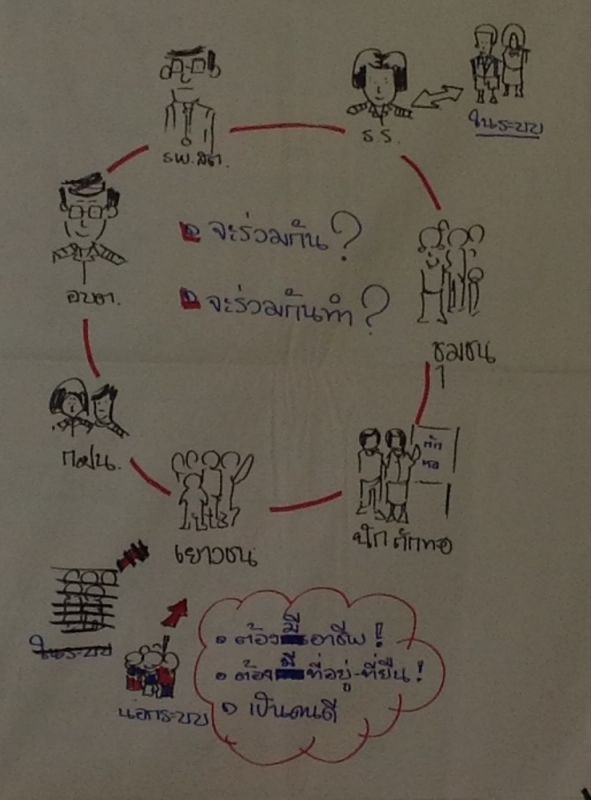 ในระบบ
รพ.สต.
ร.ร.
จะร่วมกัน?
อบต.
จะร่วมกันทำ?
ชุมชน
1
ถัก
ทอ
กศน.
นักถักทอ
เยาวชน
ในระบบ
ต้องมีอาชีพ!
ต้องมีที่อยู่-ที่ยืน!
เป็นคนดี
นอกระบบ